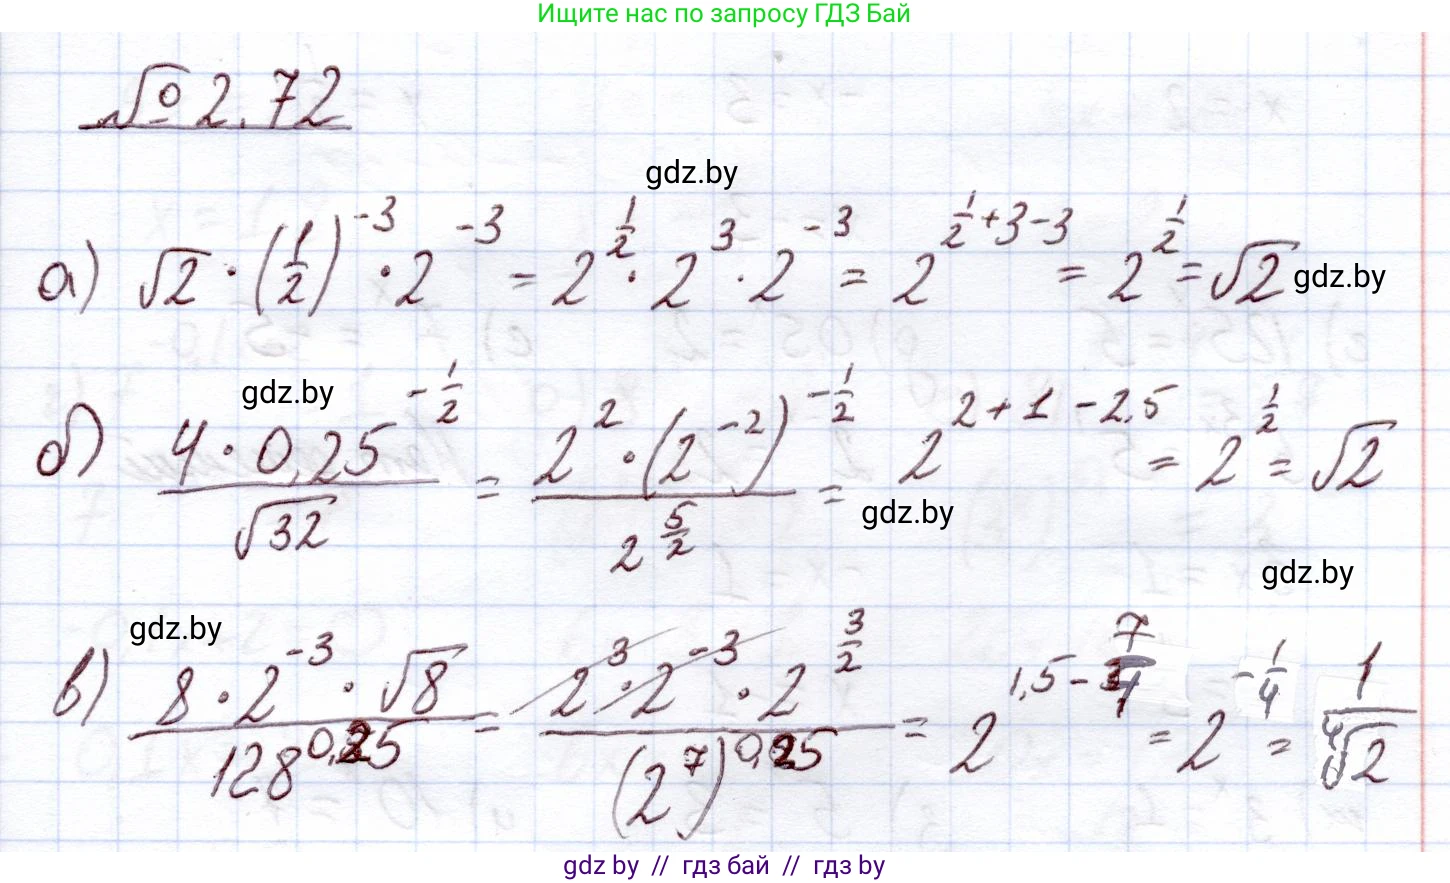 Ищите нас по запросу ГДЗ Бай
№ 2.72
gdz.by
а) √2 · (1/2)^-3 · 2^-3 = 2^1/2 · 2^3 · 2^-3 = 2^1/2+3-3 = 2^1/2 = √2
gdz.by
gdz.by
б) 4 · 0,25^-1/2 / √32 = 2^2 · (2^-2)^-1/2 / 2^5/2 = 2^2+1-2,5 = 2^1/2 = √2
gdz.by
gdz.by
gdz.by
в) 8 · 2^-3 · √8 / 128^0,25 = 2^3 · 2^-3 · 2^3/2 / (2^7)^0,25 = 2^1,5-7/4 = 2^-1/4 = 1/∜2
gdz by // гдз бай // гдз by